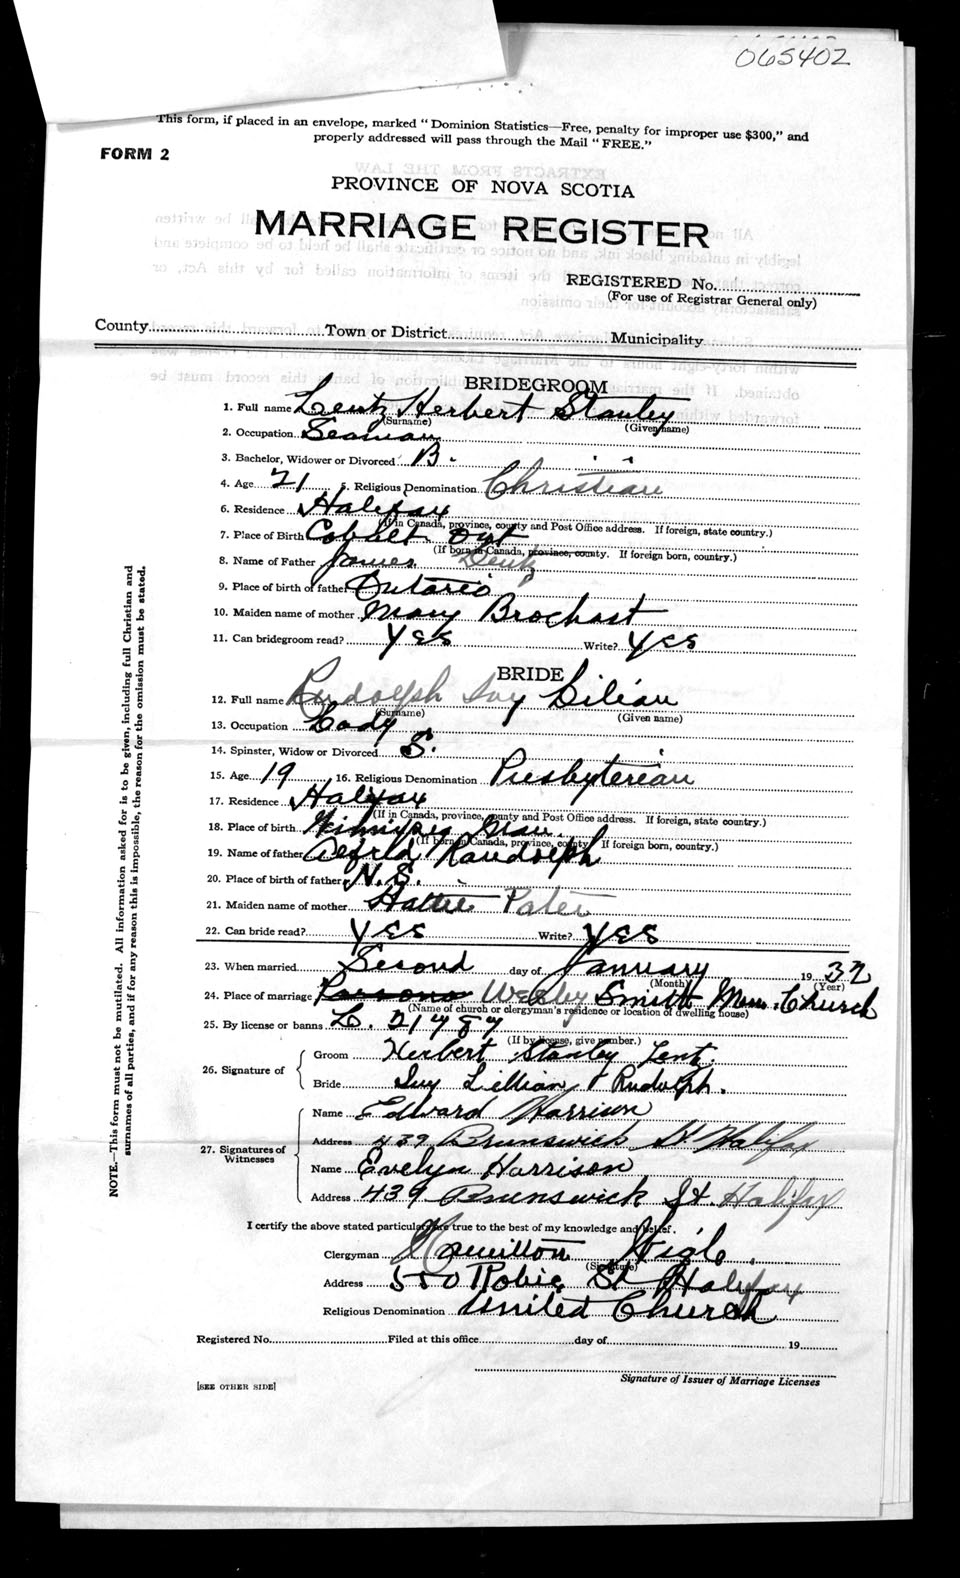 065402
This form, if placed in an envelope, marked "Dominion Statistics—Free, penalty for improper use $300," and
properly addressed will pass through the Mail "FREE."
FORM 2
PROVINCE OF NOVA SCOTIA
MARRIAGE REGISTER
REGISTERED No.
(For use of Registrar General only)
County Town or District Municipality
BRIDEGROOM
1. Full name Lentz Herbert Stanley
(Surname) (Given name)
2. Occupation Seaman
3. Bachelor, Widower or Divorced B.
4. Age 21 5. Religious Denomination Christian
6. Residence Halifax
(If in Canada, province, county and Post Office address. If foreign, state country.)
7. Place of Birth Cobalt Ont
(If born in Canada, province, county. If foreign born, country.)
8. Name of Father James Lentz
9. Place of birth of father Ontario
10. Maiden name of mother Mary Brochast
11. Can bridegroom read? Yes Write? Yes
BRIDE
12. Full name Rudolph Ivy Lilian
(Surname) (Given name)
13. Occupation Lady
14. Spinster, Widow or Divorced S.
15. Age 19 16. Religious Denomination Presbyterian
17. Residence Halifax
(If in Canada, province, county and Post Office address. If foreign, state country.)
18. Place of birth Winnipeg Man.
(If born in Canada, province, county If foreign born, country.)
19. Name of father Alfred Randolph
20. Place of birth of father N.S.
21. Maiden name of mother Hattie Pater
22. Can bride read? Yes Write? Yes
23. When married Second day of January 19 32
(Month) (Year)
24. Place of marriage Parsons Wesley Smith Mem. Church
(Name of church or clergyman's residence or location of dwelling house)
25. By license or banns L. 21787
(If by license, give number.)
26. Signature of Groom Herbert Stanley Lentz.
Bride Ivy Lillian Rudolph.
27. Signatures of Witnesses Name Edward Harrison
Address 439 Brunswick St Halifax
Name Evelyn Harrison
Address 439 Brunswick St. Halifax
I certify the above stated particulars are true to the best of my knowledge and belief.
Clergyman Hamilton Wigle.
(Signature)
Address 550 Robie St Halifax
Religious Denomination United Church
Registered No. Filed at this office day of 19
Signature of Issuer of Marriage Licenses
[SEE OTHER SIDE]
NOTE.—This form must not be mutilated. All information asked for is to be given, including full Christian and
surnames of all parties, and if for any reason this is impossible, the reason for the omission must be stated.